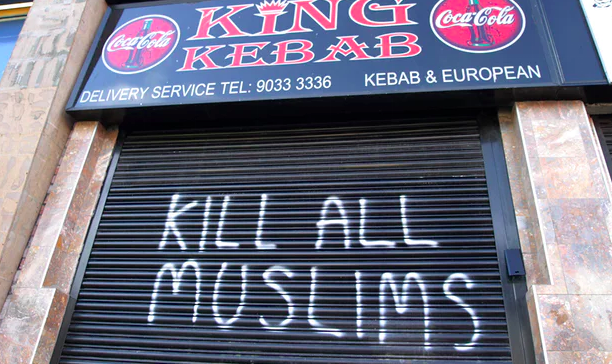 KING
KEBAB
Coca-Cola
Coca-Cola
DELIVERY SERVICE TEL: 9033 3336
KEBAB & EUROPEAN
KILL ALL
MUSLIMS